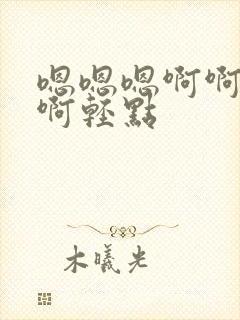 嗯嗯嗯啊啊
啊輕點
木曦光